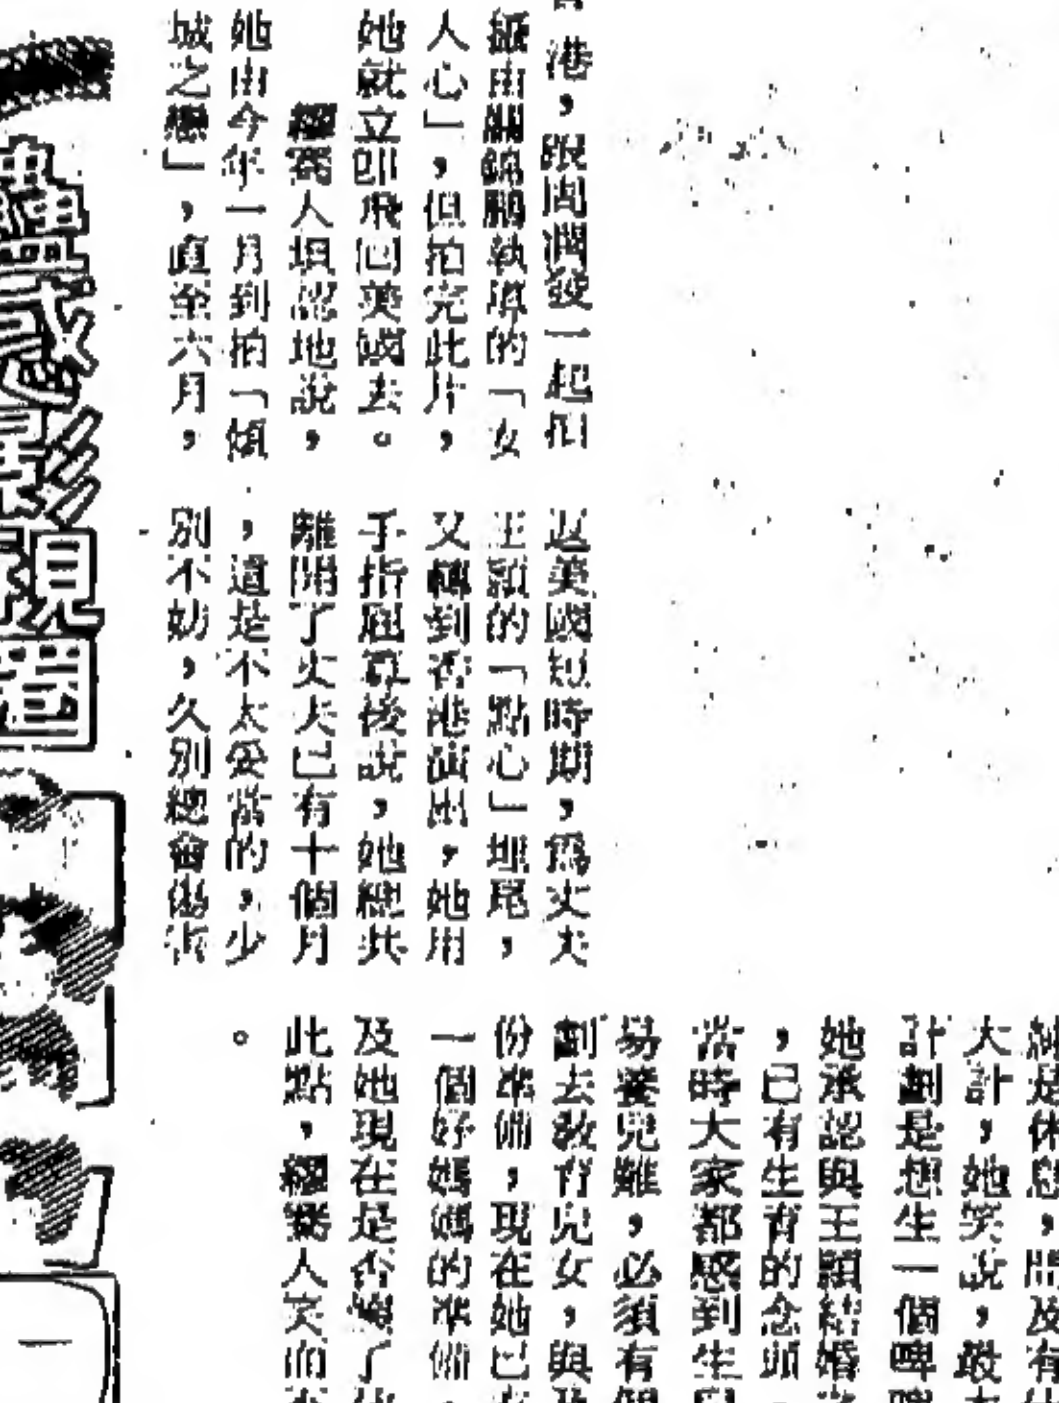 港，跟周潤發一起拍
攝由關錦鵬執導的「女
人心」，但拍完此片，
她就立即飛回英國去。
繆騫人坦認地說，
她由今年一月到拍「傾
城之戀」，直至六月，
返美國短時期，爲丈夫
王穎的「點心」埋尾，
又轉到香港演出，她用
手指屈算後說，她總共
離開了丈夫已有十個月
，這是不太妥當的，少
別不妨，久別總會傷害
。
純是休息，問及有
大計，她笑說，最
計劃是想生一個啤
她承認與王穎結婚
，已有生育的念頭，
當時大家都感到生
易養兒難，必須有個
劃去敎育兒女，與
份準備，現在她已
一個好媽媽的準備，
及她現在是否懷了
此點，繆騫人笑而
影視圈
一